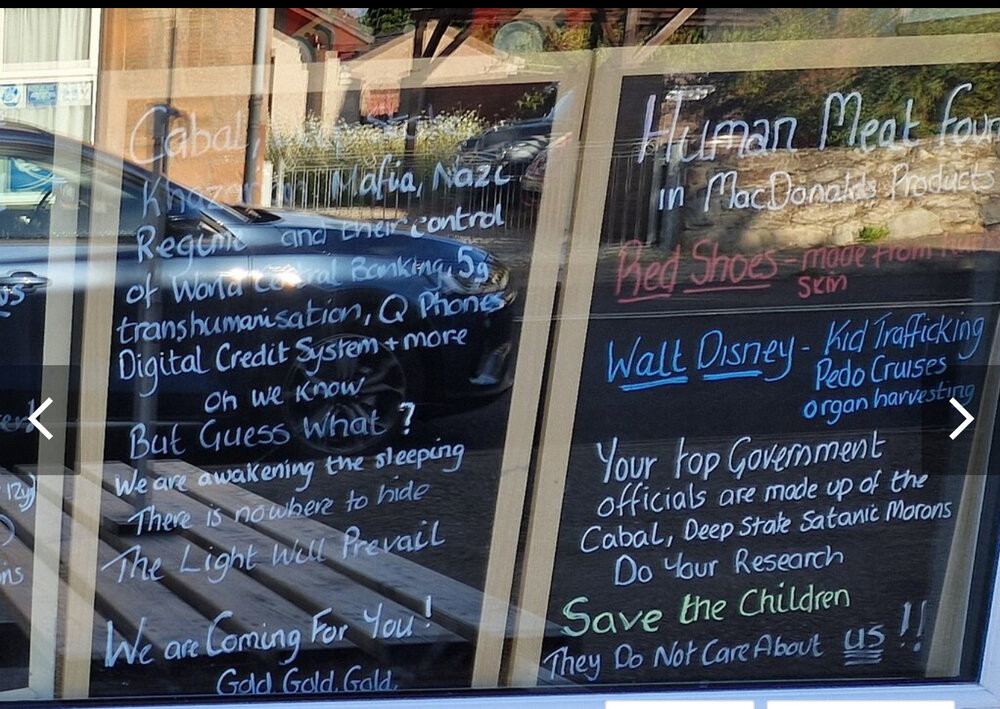 Cabal,
Mafia, Nazi
Regime and their control
of World Banking, 5g
transhumanisation, Q Phones
Digital Credit System + more
oh we know
But Guess What ?
We are awakening the sleeping
There is nowhere to hide
The Light Will Prevail
We are Coming For You!
Gold Gold Gold.
Human Meat
in MacDonalds Products
Red Shoes - made from
skin
Walt Disney - Kid Trafficking
Pedo Cruises
organ harvesting
Your top Government
officials are made up of the
Cabal, Deep State Satanic Morons
Do Your Research
Save the Children
They Do Not Care About us !!
12y)